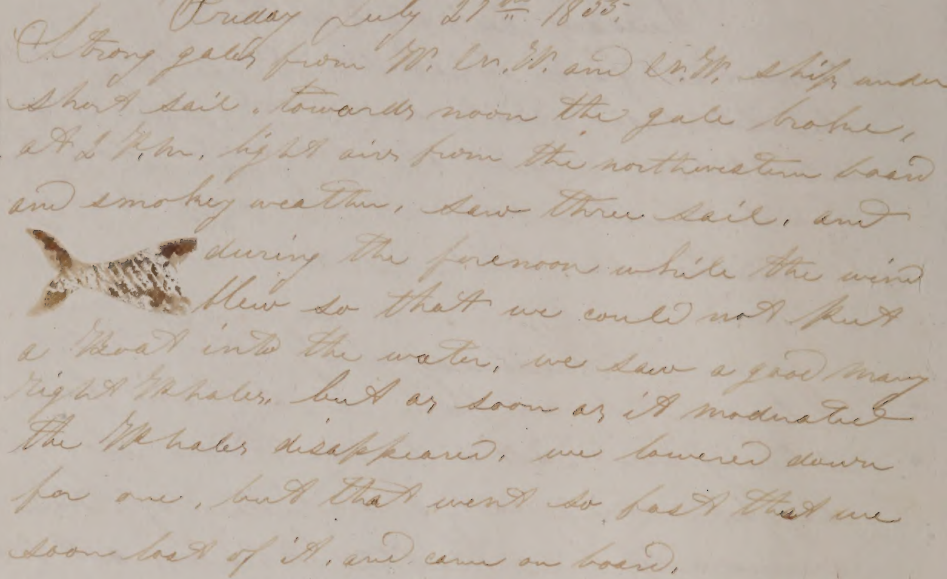 Friday July 27th 1855.
Strong gales from W. N.W. and N.W. ship under
short sail. towards noon the gale broke,
at 2 P.M. light airs from the northwestern board
and smokey weather, saw three sail. and
during the forenoon while the wind
blew so that we could not put
a Boat into the water, we saw a good many
right Whales, but as soon as it moderated
the Whales disappeared. we lowered down
for one, but that went so fast that we
soon lost of it, and came on board.